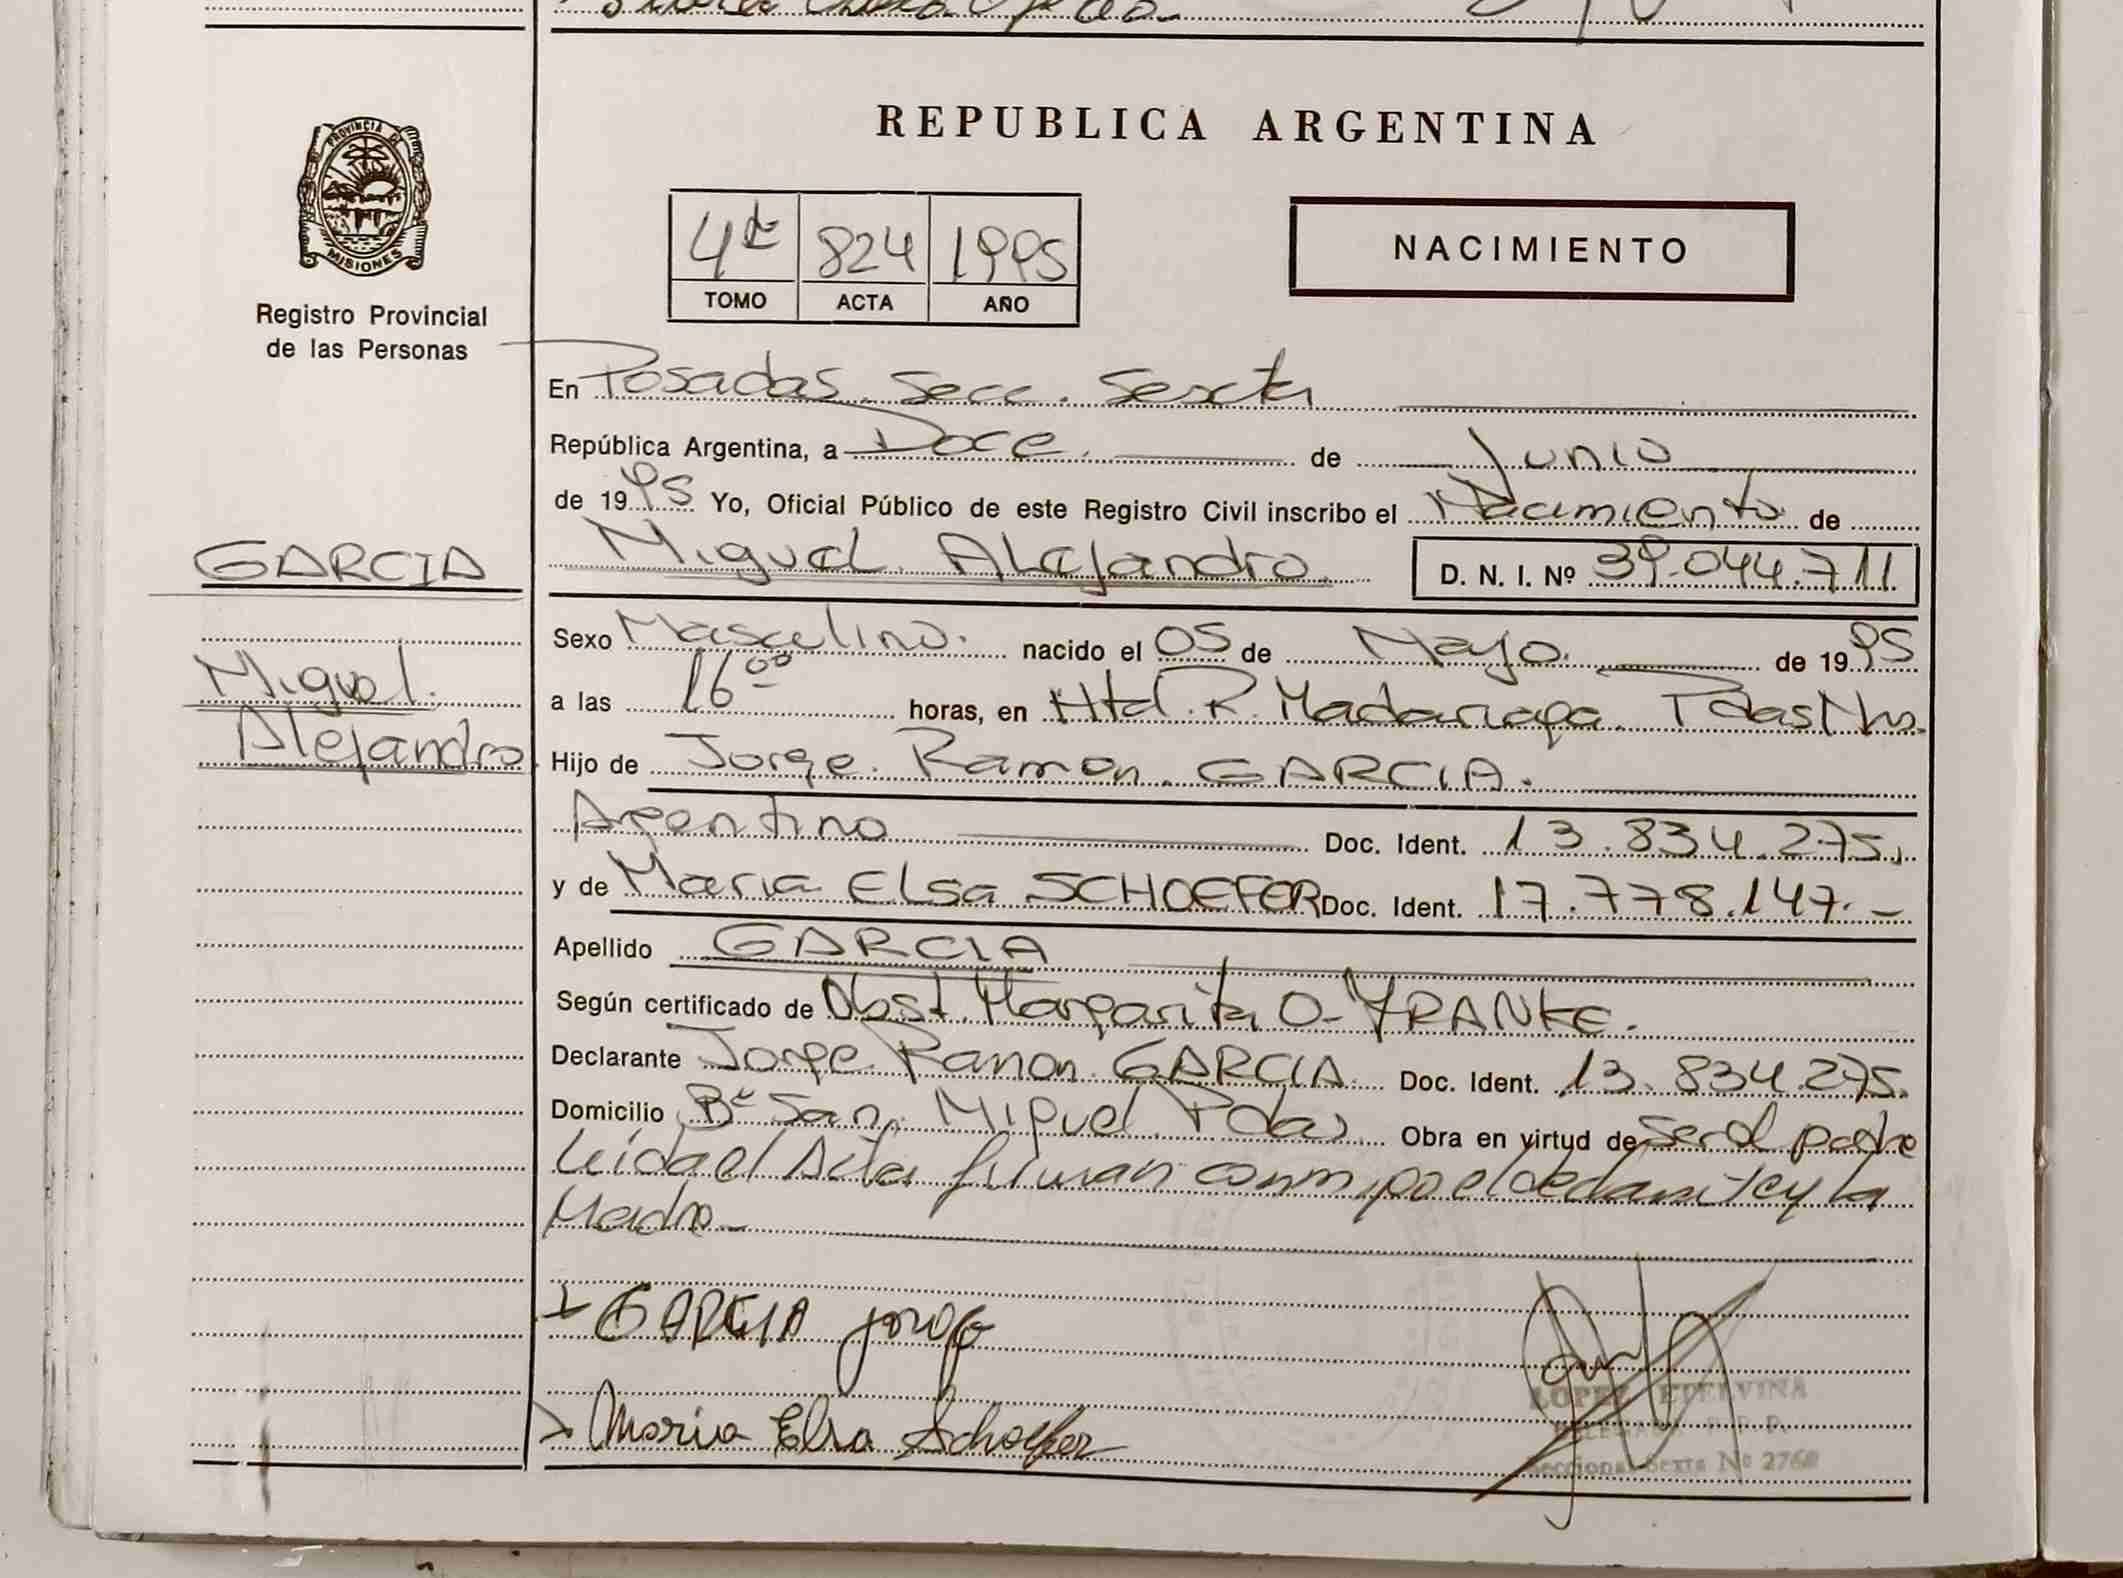 REPUBLICA ARGENTINA
PROVINCIA DE
MISIONES
Registro Provincial
de las Personas
4to 824 1995
TOMO ACTA AÑO
NACIMIENTO
En Posadas. Secc. Sexta
República Argentina, a Doce. de Junio
de 1995 Yo, Oficial Público de este Registro Civil inscribo el Nacimiento de
GARCIA
Miguel Alejandro. D. N. I. Nº 39.044.711
Sexo Masculino. nacido el 05 de Mayo. de 1995
Miguel.
a las 16 00 horas, en Htal. R. Madariaga. Pdas Mnes.
Alejandro
Hijo de Jorge. Ramon. GARCIA.
Argentino Doc. Ident. 13.834.275.
y de Maria Elsa SCHOEFER Doc. Ident. 17.778.147.-
Apellido GARCIA
Según certificado de Obst. Margarita O. FRANKE.
Declarante Jorge Ramon. GARCIA. Doc. Ident. 13.834.275.
Domicilio Bº San Miguel Pdas. Obra en virtud de ser el padre
Leida el Acta firman conmigo el declarante y la
Madre-
GARCIA Jorge
Maria Elsa Schoefer
LOPEZ ETELVINA
DELEGADA R. P. P.
Seccional Sexta Nº 2760